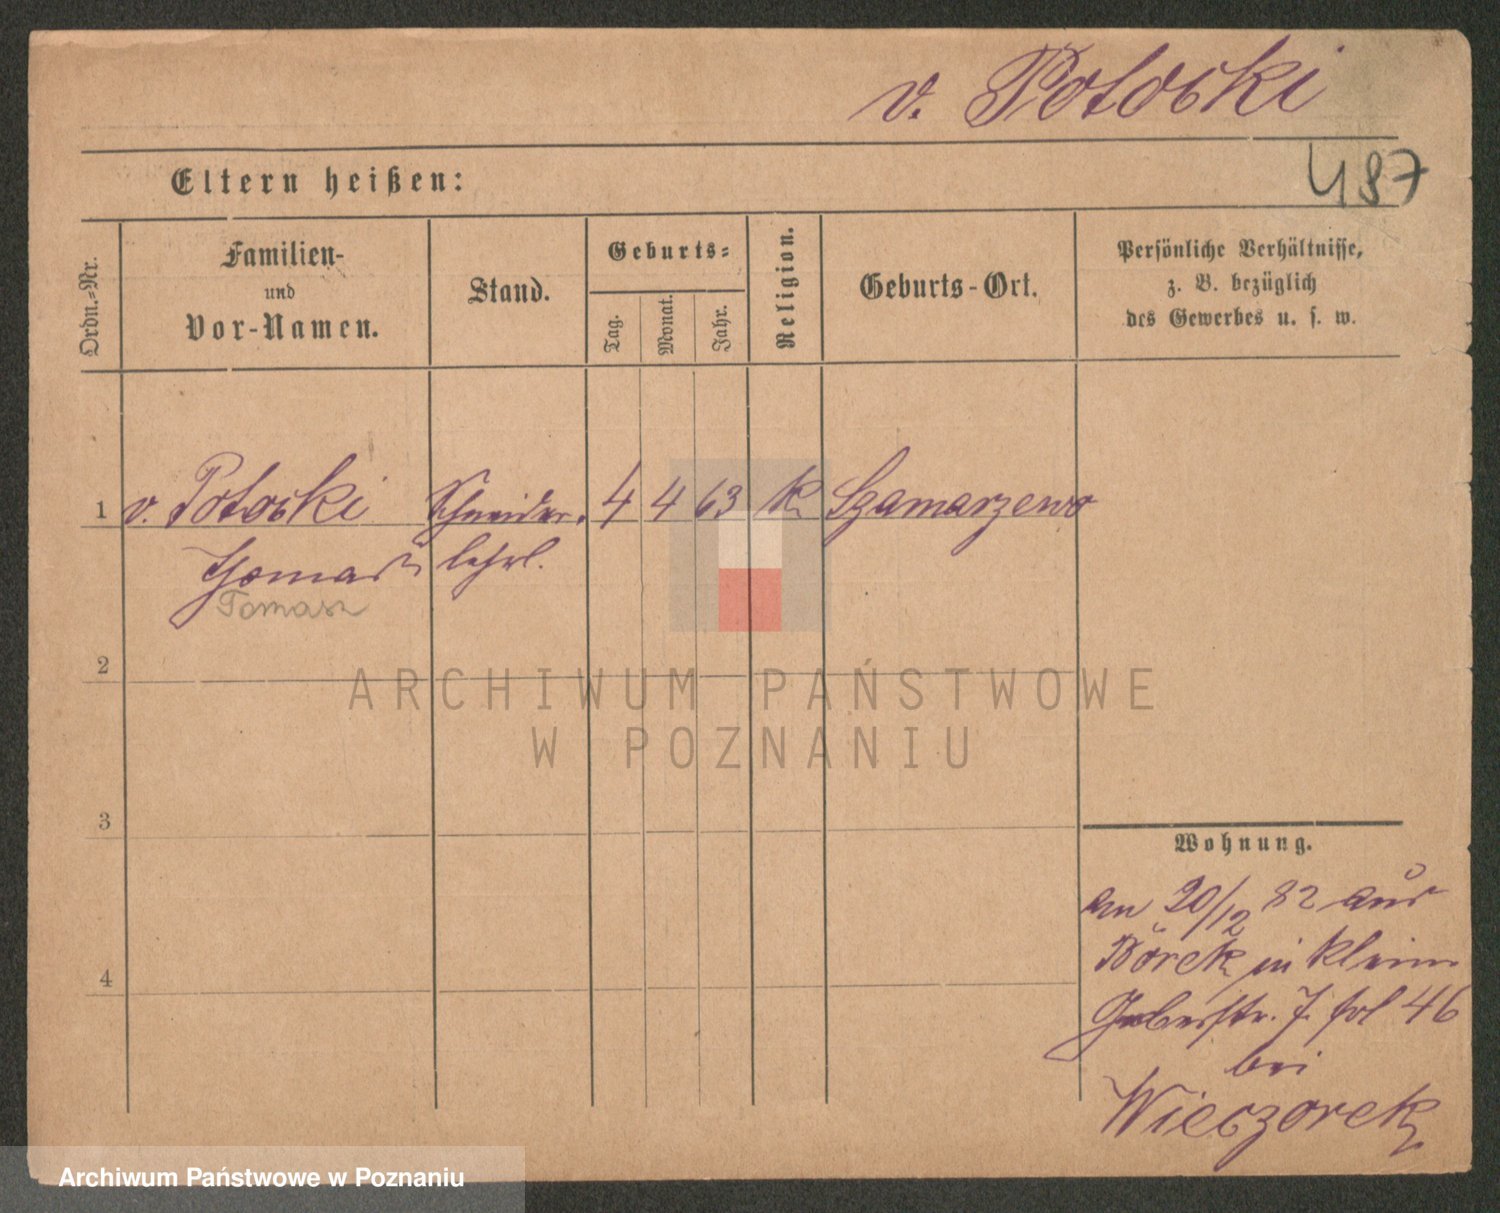 v. Potocki
487
Eltern heißen:
Ordn.-Nr.
Familien-
und
Vor-Namen.
Stand.
Geburts-
Tag.
Monat.
Jahr.
Religion.
Geburts-Ort.
Persönliche Verhältnisse,
z. B. bezüglich
des Gewerbes u. s. w.
1 v. Potocki Schneider. 4 4 63 k Szamarzewo
Thomas lehrl.
Tomasz
2
ARCHIWUM PAŃSTWOWE
W POZNANIU
3
Wohnung.
am 20/12 82 aus
4
Borek in Klein
Gerberstr. 7. fol 46
bei
Wieczorek
Archiwum Państwowe w Poznaniu